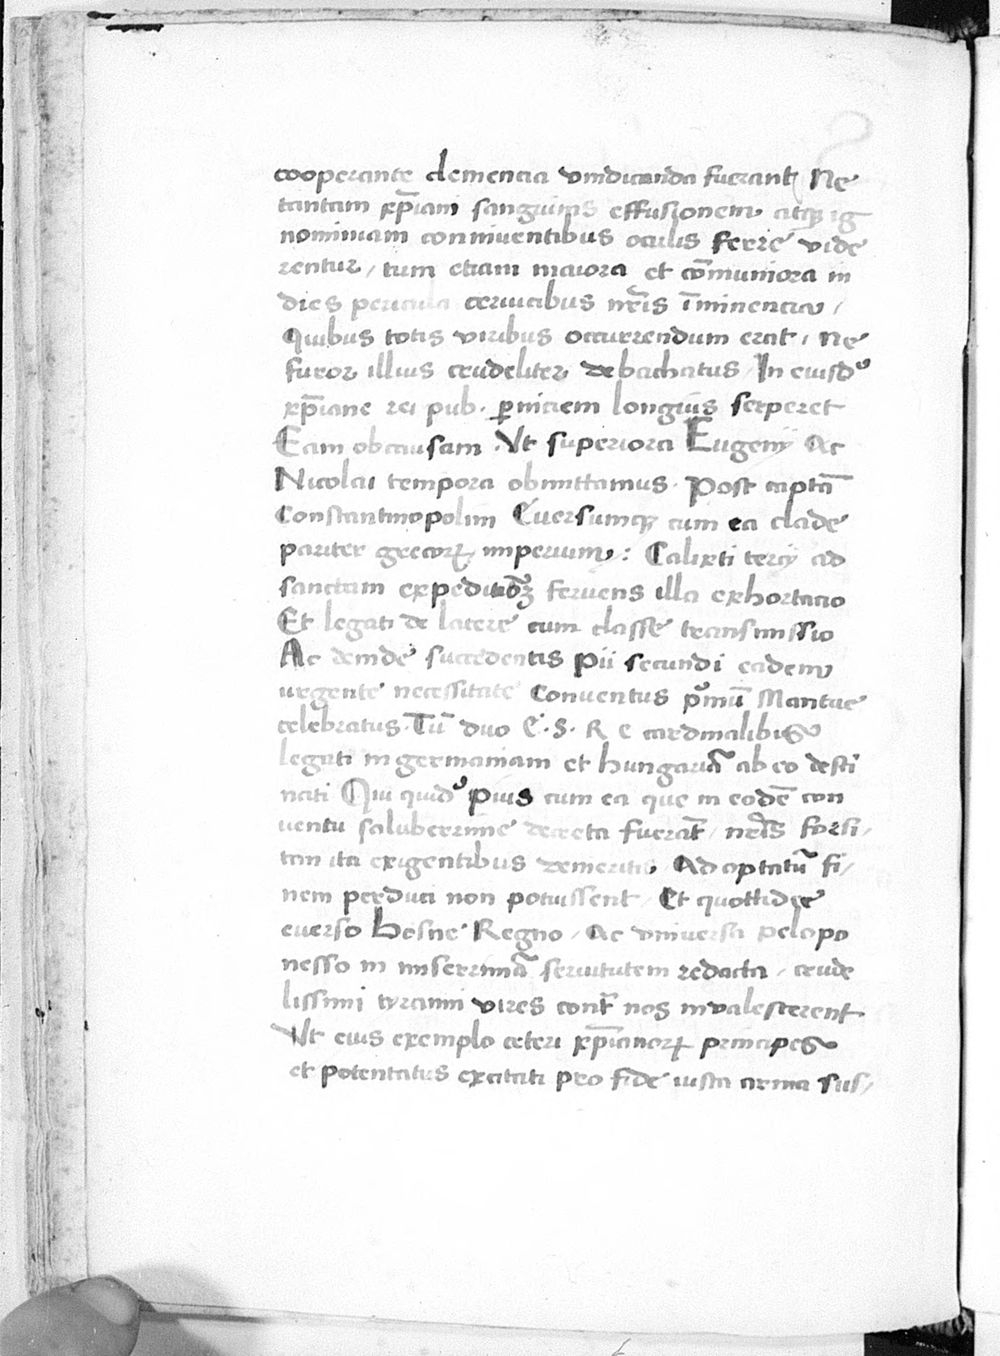 cooperante clemencia vindicanda fuerant Ne
tantam xp̄iam sanguinis effusionem atqꝫ ig
nominiam conniventibus oculis ferre vide
rentur / tum etiam maiora et cōmuniora in
dies pericula cervicibus nr̄is īminencia /
Quibus totis viribus occurrendum erat / ne
furor illius crudeliter debachatus / In eiusdꝰ
xp̄iane rei pub. ꝑniciem longius serperet
Eam ob causam Vt superiora Eugenij Ac
Nicolai tempora obmittamus . Post captā
Constantinopolim Euersumqꝫ cum ea clade
pariter grecorꝝ imperium : Calixti tercij ad
sanctam expeditiōꝫ fervens illa exhortacio
Et legati de latere cum classe transmissio
Ac deinde succedentis Pii secundi eadem
urgente necessitate Conventus pꝰmū Mantue
celebratus . Tū duo S. R E cardinalibus
legati in germaniam et hungariā ab eo desti
nati Qui quidꝰ Pius cum ea que in eodē con
ventu saluberrime decreta fuerāt / nr̄is forsi /
tan ita exigentibus demeritis Ad optatū fi /
nem perduci non potuissent / Et quottidie
everso Bosne Regno / Ac universa pelopo
nesso in miserrimā servitutem redacta / crude
lissimi tyranni vires contr̄ nos invalescerent
Vt eius exemplo ceteri xp̄ianorꝝ principes
et potentatus excitati pro fide iusta arma sus /